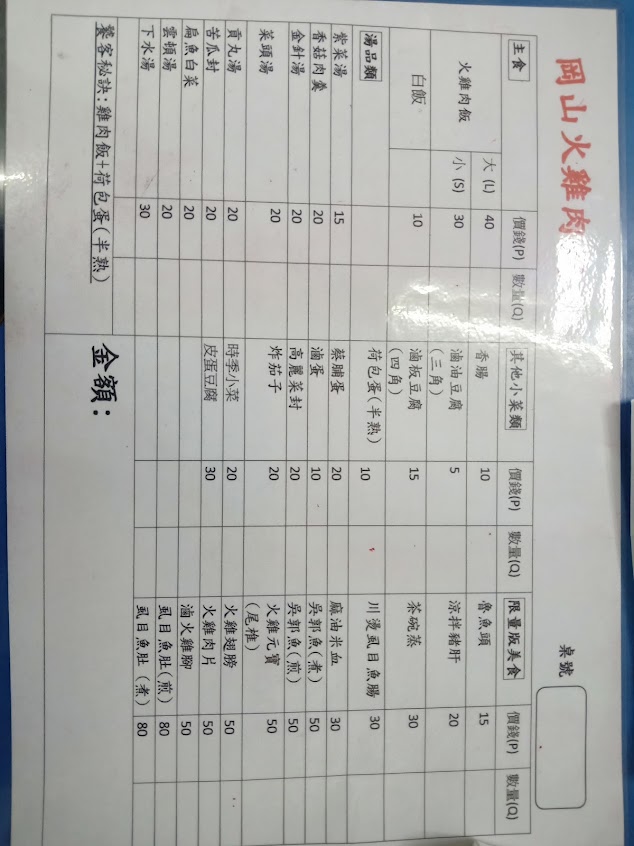 岡山火雞肉
桌號
主食 價錢(P) 數量(Q) 其他小菜類 價錢(P) 數量(Q) 限量版美食 價錢(P) 數量(Q)
火雞肉飯 大(L) 40 香腸 10 魯魚頭 15
小(S) 30 滷油豆腐(三角) 5 涼拌豬肝 20
白飯 10 滷板豆腐(四角) 15 茶碗蒸 30
湯品類 荷包蛋(半熟) 10 川燙虱目魚腸 30
紫菜湯 15 蔡脯蛋 20 麻油米血 30
香菇肉羹 20 滷蛋 10 吳郭魚(煮) 50
金針湯 20 高麗菜封 20 吳郭魚(煎) 50
菜頭湯 20 炸茄子 20 火雞元寶(尾椎) 50
貢丸湯 20 時季小菜 20 火雞翅膀 50
苦瓜封 20 皮蛋豆腐 30 火雞肉片 50
扁魚白菜 20 滷火雞腳 50
雲頓湯 20 虱目魚肚(煎) 80
下水湯 30 虱目魚肚(煮) 80
饕客秘訣:雞肉飯+荷包蛋(半熟)
金額: